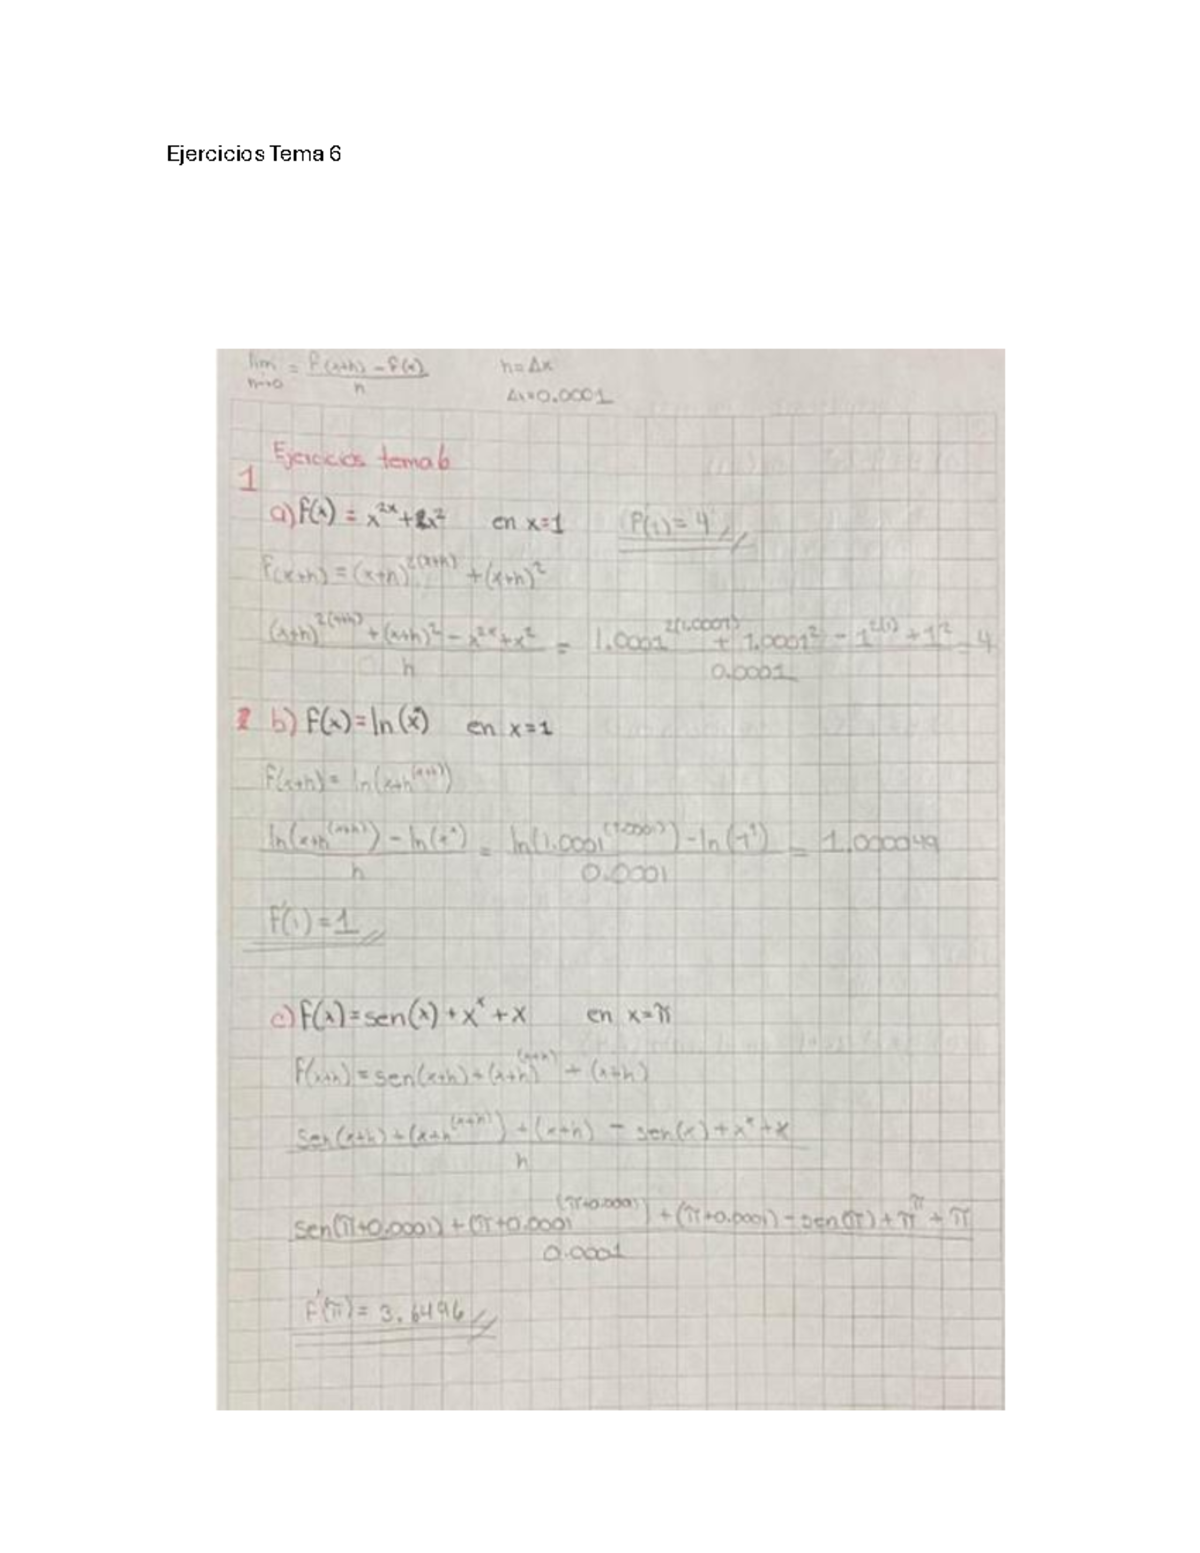 Ejercicios Tema 6
lim h→0 = f(x+h) - f(x) / h    h = Δx
Δx=0.0001
Ejercicios tema 6
1
a) f(x) = x^2x + x^2    en x=1    f'(1) = 4
f(x+h) = (x+h)^2(x+h) + (x+h)^2
(x+h)^2(x+h) + (x+h)^2 - x^2x + x^2 / h = 1.0001^2(1.0001) + 1.0001^2 - 1^2(1) + 1^2 / 0.0001 = 4
b) f(x) = ln(x^x)    en x=1
f(x+h) = ln(x+h^(x+h))
ln(x+h^(x+h)) - ln(x^x) / h = ln(1.0001^(1.0001)) - ln(1^1) / 0.0001 = 1.000049
f'(1) = 1
c) f(x) = sen(x) + x^x + x    en x=π
f(x+h) = sen(x+h) + (x+h)^(x+h) + (x+h)
sen(x+h) + (x+h^(x+h)) + (x+h) - sen(x) + x^x + x / h
sen(π+0.0001) + (π+0.0001^(π+0.0001)) + (π+0.0001) - sen(π) + π^π + π / 0.0001
f'(π) = 3.6496